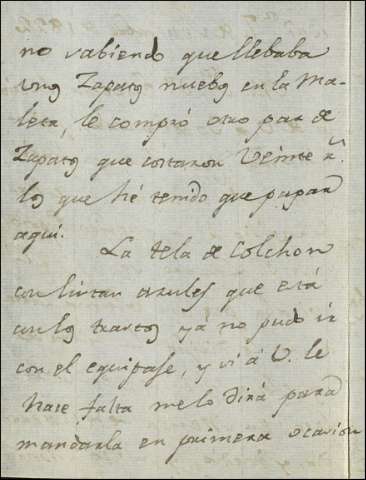 no sabiendo que llebaba
unos Zapatos nuebos en la Ma-
leta, le compró otro par de
Zapatos que costaron veinte r.ˢ
los que hé tenido que pagar
aqui.
La tela de Colchon
con listas azules que está
con los trastos ya no pudo ir
con el equipaje, y si á V. le
hace falta me lo dirá para
mandarla en primera ocasion